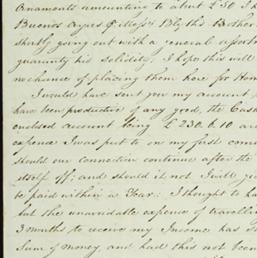 Ornaments amounting to about £50 I h
Buenos Ayres his Brother
shortly going out with a general assortm
guaranty his solidity. I hope this will
no chance of placing them here for Hom
I would have sent you my account
have been productive of any good, the Cash
enclosed account being £230.6.10 are
expence I was put to on my first com
should our connection continue after the
itself off; and should it not I will giv
to paid within a Year. I thought to ha
but the unavoidable expence of travellin
3 months to receive my Income has
Sum of money and had this not been